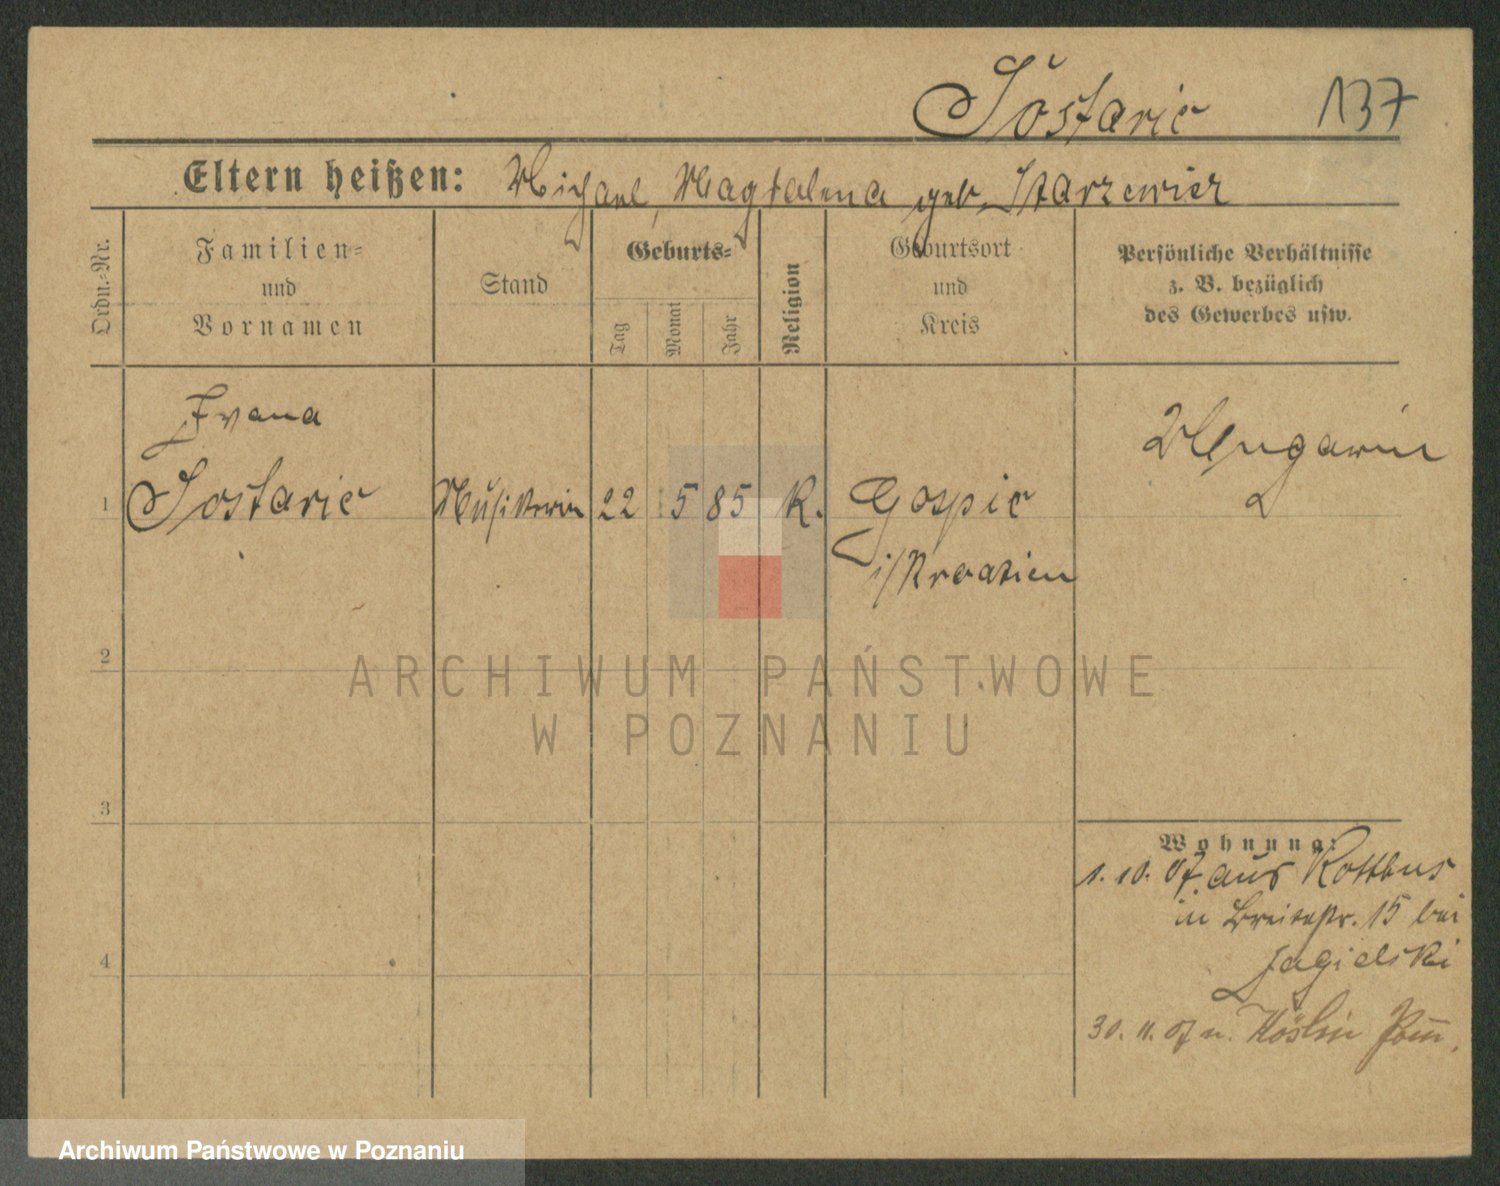 Šostaric 137
Eltern heißen: Michael, Magdalena geb. Starzewicz
Ordn.=Nr.
Familien=
und
Vornamen
Stand
Geburts=
Tag
Monat
Jahr
Religion
Geburtsort
und
Kreis
Persönliche Verhältnisse
z. B. bezüglich
des Gewerbes usw.
Ivana
1 Sostaric Musikerin 22 5 85 K. Gospic
i/Kroatien
Ungarin
2
3
4
ARCHIWUM PAŃSTWOWE
W POZNANIU
Wohnung:
1. 10. 07. aus Kottbus
in Breitestr. 15 bei
Jagielski
30. 11. 07 n. Köslin Pom.
Archiwum Państwowe w Poznaniu